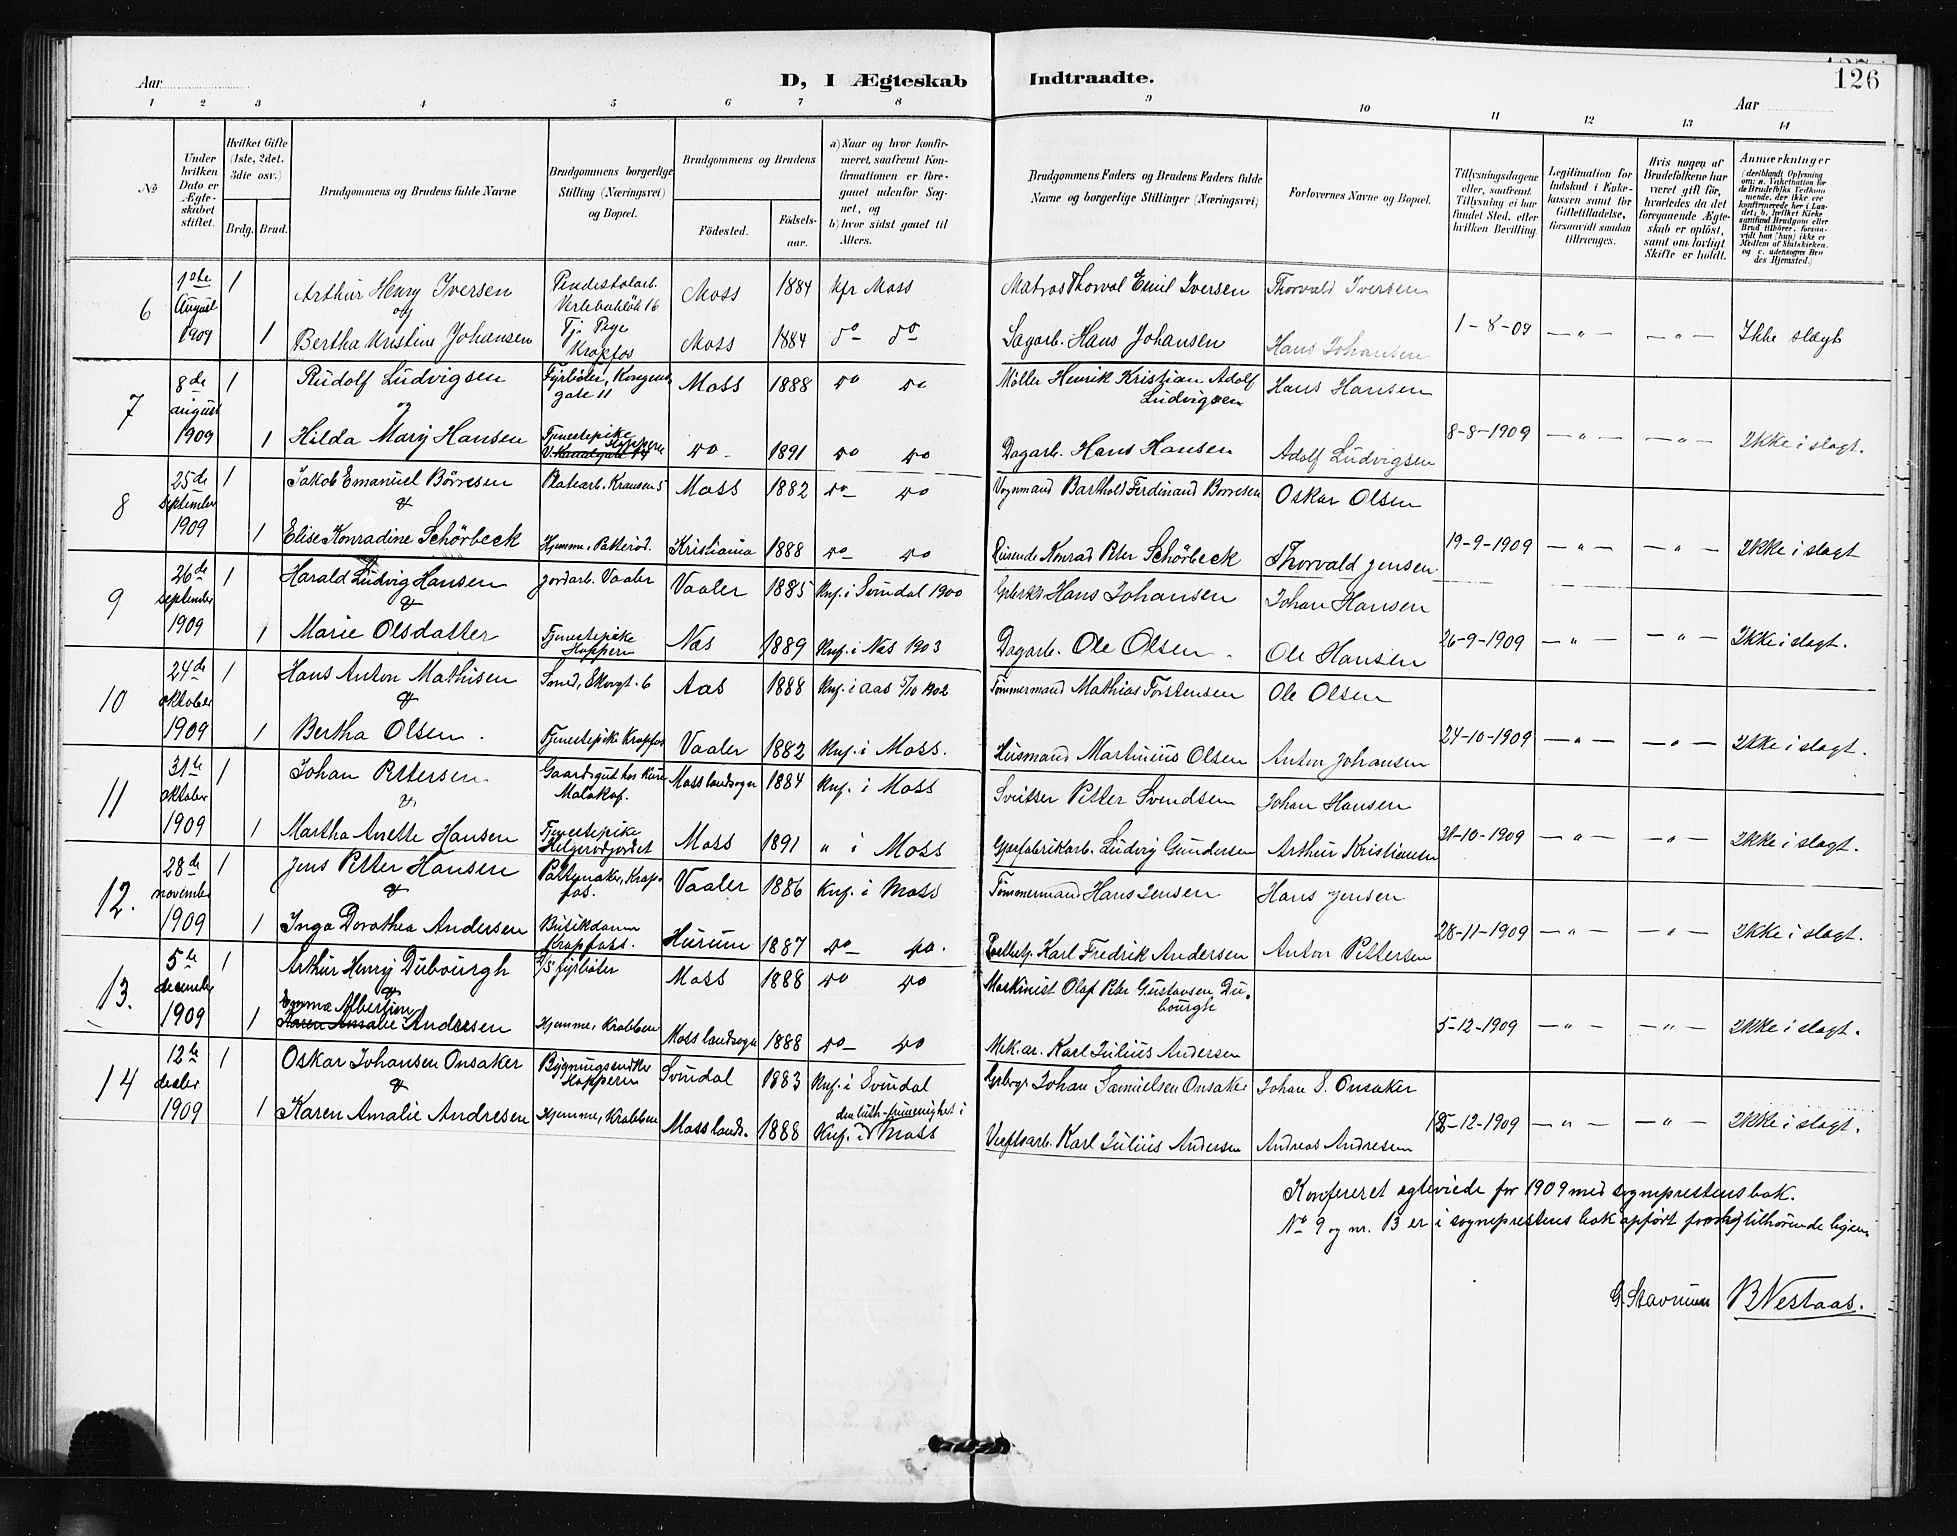 126
Aar
D, I Ægteskab Indtraadte.
Aar
1 2 3 4 5 6 7 8 9 10 11 12 13 14
No
Under hvilken Dato er Ægteskabet stiftet.
Hvilket Gifte (1ste, 2det. 3die osv.)
Brdg. Brud.
Brudgommens og Brudens fulde Navne
Brudgommens borgerlige Stilling (Næringsvei) og Bopæl.
Brudgommens og Brudens
Fødested.
Fødselsaar.
a) Naar og hvor konfirmeret, saafremt Konfirmationen er foregaaet udenfor Sognet, og
b) hvor sidst gaaet til Alters.
Brudgommens Faders og Brudens Faders fulde Navne og borgerlige Stillinger (Næringsvei)
Forlovernes Navne og Bopæl.
Tillysningsdagene eller, saafremt Tillysning ei har fundet Sted, efter hvilken Bevilling.
Legitimation for Indskud i Enkekassen samt for Giftetilladelse, forsaavidt saadan tiltrænges.
Hvis nogen af Brudefolkene har været gift før, hvorledes da det foregaaende Ægteskab er opløst, samt om lovligt Skifte er holdt.
Anmærkninger
6 1ste August 1909 1 Arthur Henry Iversen Moss 1884 Kfr Moss Matros Thorval Emil Iversen Thorvald Iversen
og
1 Bertha Kristine Johansen Tj. Pige Krapfos Moss 1884 do do Sagarb. Hans Johansen Hans Johansen 1-8-09 — " — — " — Ikke slægt
7 8de august 1909 1 Rudolf Ludvigsen Fyrbøter, Kongensgate 11 Moss 1888 do do Møller Henrik Kristian Adolf Ludvigsen Hans Hansen
og
1 Hilda Mary Hansen Tjenestepike Hoppern do 1891 do do Dagarb. Hans Hansen Adolf Ludvigsen 8-8-1909 — " — — " — Ikke i slagt.
8 25de september 1909 1 Jakob Emanuel Børresen Moss 1882 do do Vognmand Barthold Ferdinand Børresen Oskar Olsen
&
1 Elise Konradine Schørbeck Hjemme, Patterød. Kristiania 1888 do do Reisende Konrad Peter Schørbeck Thorvald Jensen 19-9-1909 — " — — " — Ikke i slagt
9 26de september 1909 1 Harald Ludvig Hansen Jordarb. Vaaler Vaaler 1885 Knf. i Svindal 1900 Hans Johansen Johan Hansen
&
1 Marie Olsdatter Tjenestepike Hoppern Nes 1889 Knf. i Nes 1903 Dagarb. Ole Olsen Ole Hansen 26-9-1909 — " — — " — Ikke i slagt.
10 24de oktober 1909 1 Hans Anton Mathisen Aas 1888 Knf. i Aas 5/10 1902 Tømmermand Mathias Torstensen Ole Olsen
&
1 Bertha Olsen. Tjenestepike Krapfos Vaaler 1882 Knf. i Moss. Husmand Martinius Olsen Anton Johansen 24-10-1909 — " — — " — Ikke i slagt.
11 31te oktober 1909 1 Johan Pettersen Gaardsgut Moss landsogn 1884 Knf. i Moss Sveitser Petter Svendsen Johan Hansen
&
1 Martha Anette Hansen Tjenestepike Helgerødgjordet Moss 1891 " i Moss Ludvig Gundersen Arthur Kristiansen 31-10-1909 — " — — " — Ikke i slagt.
12. 28de november 1909 1 Jens Petter Hansen Krapfos. Vaaler 1886 Knf. i Moss Tømmermand Hans Jensen Hans Jensen
&
1 Inga Dorothea Andersen Butikdame Krapfoss. Hurum 1887 do do. Karl Fredrik Andersen Anton Pettersen 28-11-1909 — " — — " — Ikke i slagt.
13. 5te december 1909 1 Arthur Henry Dubourgh D/S fyrbøter Moss 1888 do do Maskinist Olaf Peter Gustavsen Dubourgh
&
Emma Albertine
1 Karen Amalie Andresen Hjemme, Krabben Moss landsogn 1888 do do Mek. ar. Karl Julius Andersen 5-12-1909 — " — — " — Ikke i slagt.
14 12te desbr 1909 1 Oskar Johansen Onsaker Bygningssnedker Hoppern Svindal 1883 Knf. i Svindal Johan Samuelsen Onsaker Johan S. Onsaker
&
1 Karen Amalie Andresen Hjemme, Krabben Moss lands. 1888 Knf. i den luth-frimenighet i Moss Verftsarb. Karl Julius Andersen Andreas Andresen 12-12-1909 — " — — " — Ikke i slagt.
Konfereret egteviede for 1909 med sogneprestens bok.
No 9 og nr. 13 er i sogneprestens bok opført
G. Stavrum B Nestaas.